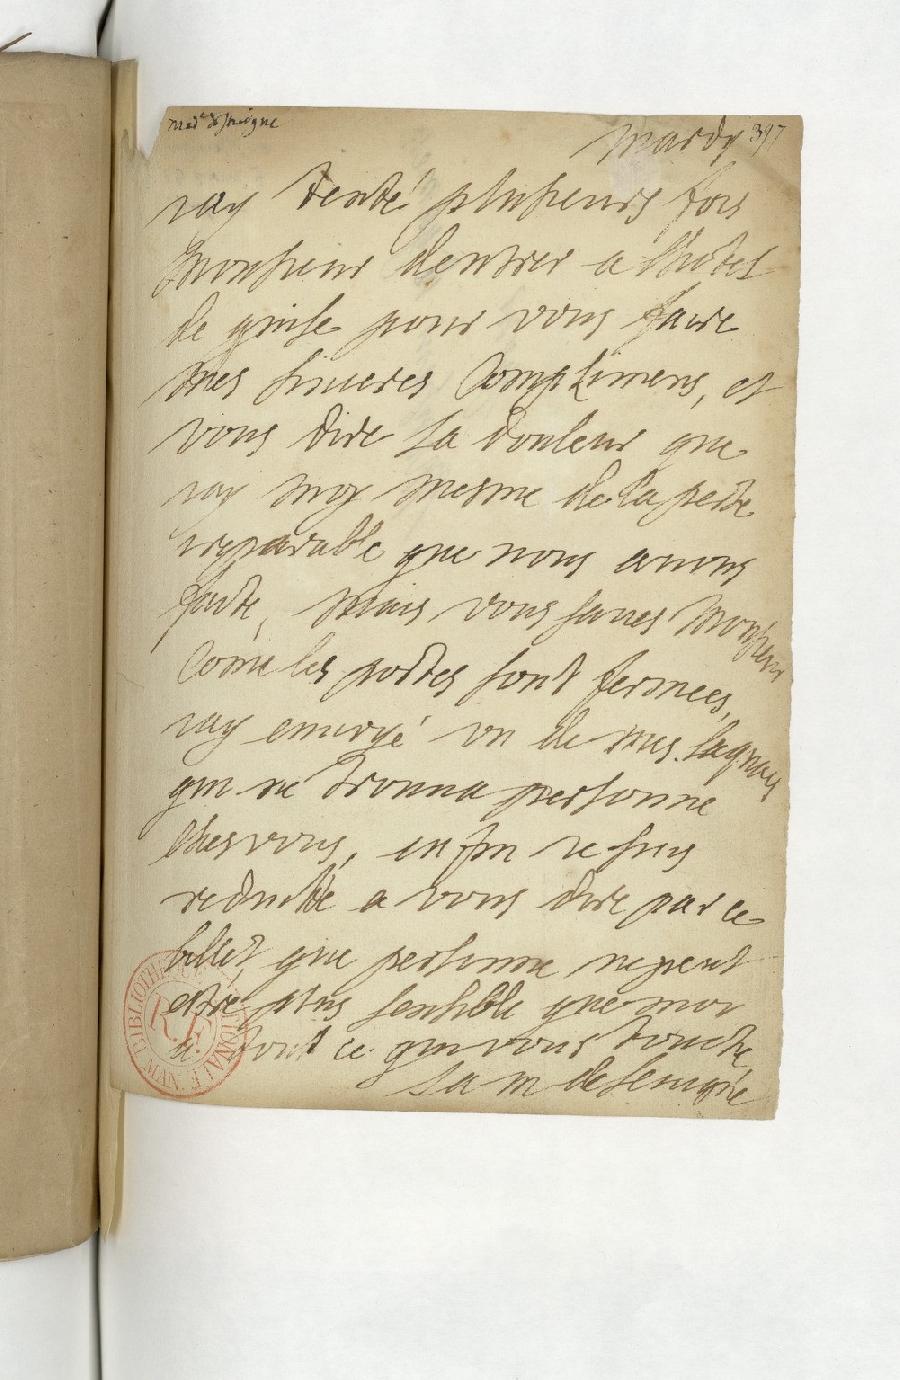 Mad.e de Sevigné
mardy 397
iay tenté plusieurs fois
Monsieur dentrer a lhotel
de guise pour vous faire
mes sinceres Complimens, et
vous dire la douleur que
iay moy mesme de la perte
ireparable que nous auons
faite, mais vous saues Monsieur
Come les portes sont fermees,
iay enuoyé vn de mes laquais
qui ne trouua personne
ches vous, enfin ie suis
reduitte a vous dire par ce
billet que personne ne peut
estre plus sensible que moy
a tout ce qui vous touche,
la m de Seuigné
BIBLIOTHEQUE NATIONALE MAN
R.F.